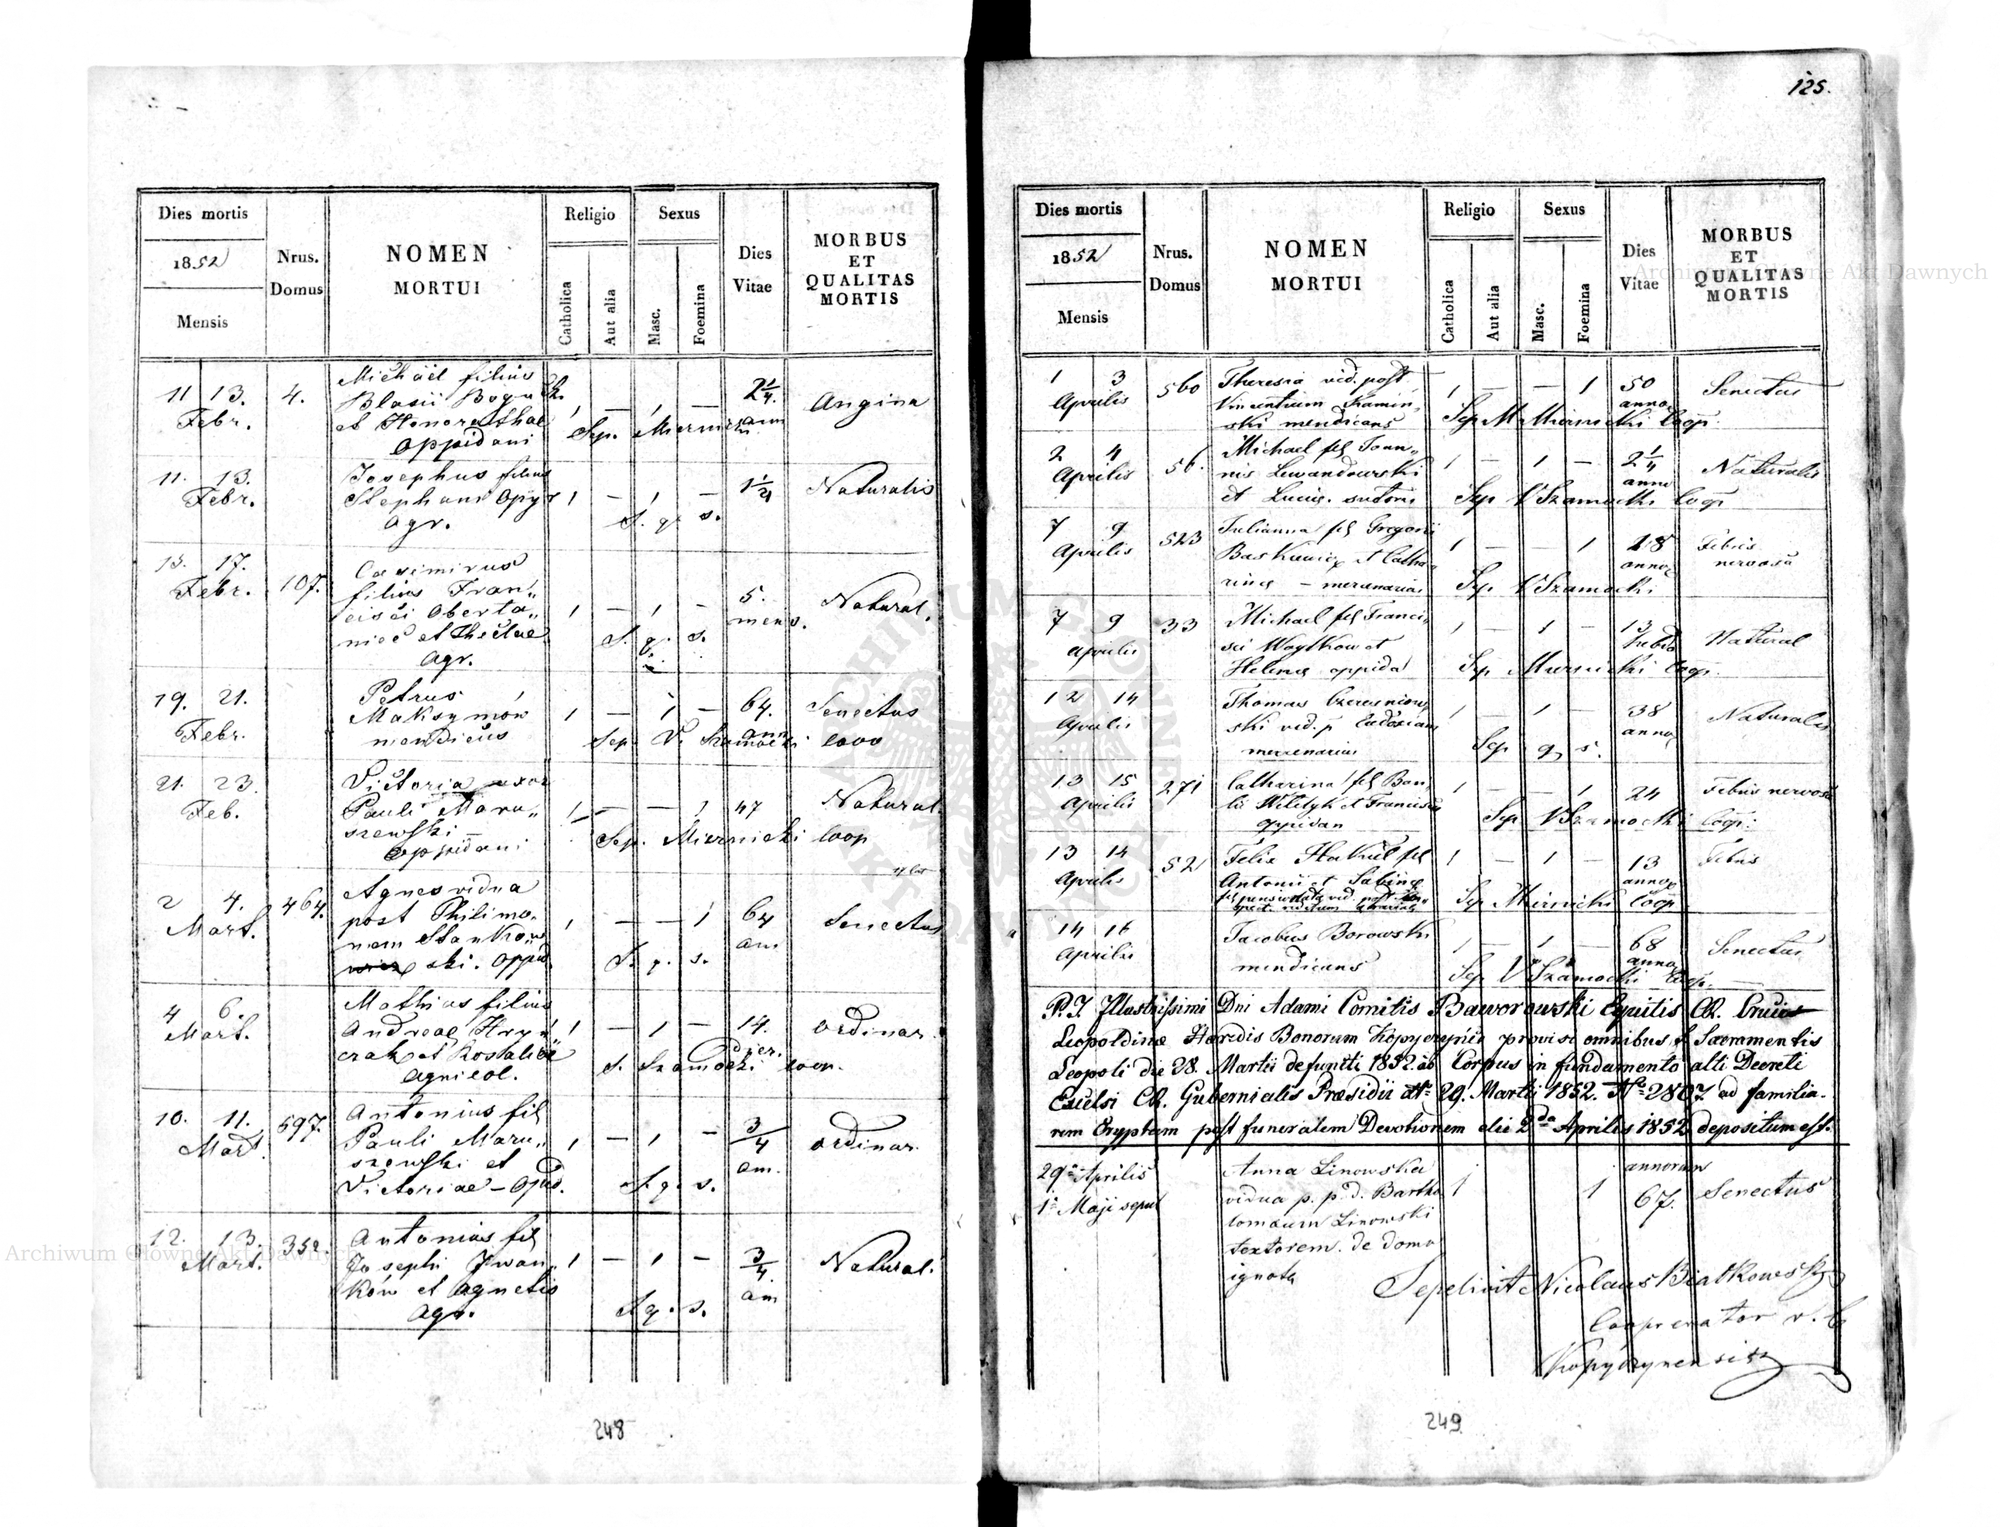 125.
Dies mortis
1852
Mensis
Nrus.
Domus
NOMEN
MORTUI
Religio
Catholica
Aut alia
Sexus
Masc.
Foemina
Dies
Vitae
MORBUS
ET
QUALITAS
MORTIS
11 13. 4. Michäel filius 2 1/4.
Febr. Blasii 1 — 1 — Angina
et Honorathae Sep. Miernicki
Oppidani
11. 13. Josephus filius 1 1/4 Naturalis
Febr. Stephani Opyr 1 — 1 —
Agr. S. q. s.
15. 17. Casimirus
Febr. 107. filius Fran„ 5. Natural.
cisci Oberta„ 1 — 1 — mens.
niec et Theclae S. q. s.
Agr.
19. 21. Petrus 64. Senectus
Febr. Maksymów 1 — 1 — ann
mendicus Sep. V. Szamocki Coop
21. 23. Victoria uxor
Feb. Pauli Maru„ 1 — — 1 47 Natural.
szewski Sep. Miernicki Coop
Oppidani
2 4. 464. Agnes vidua
Mart. post Philimo„ 1 — — 1 64 Senectus
nem Stanków ann
ski. Oppid. S. q. s.
4 6. Mathias filius
Mart. Andreae Hryń 1 — 1 — 14. ordinar.
czak et Rosaliae dier.
Agricol. S. Szamocki Coop.
10. 11. 597. Antonius fil
Mart. Pauli Maru„ 1 — 1 — 3/4 ordinar.
szewski et ann.
Victoriae – Opid. S. q. s.
12. 13. 352. Antonius fil
Mart. Josephi Iwan„ 1 — 1 — 3/4. Natural.
ków et Agnetis ann
Agr. S. q. s.
248
Dies mortis
1852
Mensis
Nrus.
Domus
NOMEN
MORTUI
Religio
Catholica
Aut alia
Sexus
Masc.
Foemina
Dies
Vitae
MORBUS
ET
QUALITAS
MORTIS
1 3 560 Theresia vid. post 1 — — 1 50 Senectus
Aprilis Vincentium Kamin„ anno
ski mendicans Sep M Miernicki Coop.
2 4 56. Michael fil Joan„ 1 — 1 — 2 1/4 Naturalis
Aprilis nis Lewandowski anno
et Luciae sutoris Sep V Szamocki Coop
7 9 523 Julianna fil Gregorii 1 — 1 28 Febris
Aprilis et Catha„ anno nervosa
rinae – mercenaria Sep V Szamocki
7 9 33 Michael fil Francis 1 — 1 — 13 Natural
Aprilis ci Woytkow et
Helenae oppida Sep Miernicki Coop.
12 14 Thomas 1 — 1 — 38 Naturalis
Aprilis ski vid. p. anno
mercenarius Sep q. s.
13 15 271 Catharina fil Basi 1 — — 1 24 Febris nervosa
Aprilis lii et Francisca
oppidan Sep V Szamocki Coop.
13 14 52 Felix fil 1 — 1 — 13 Febris
Aprilis Antonii et Sabinae annor
Sep Miernicki Coop
14 16 Jacobus Borowski 1 — 1 — 68 Senectus
Aprilis mendicans anno
Sep V Szamocki Coop.
P. T. Illustrissimi Dni Adami Comitis Baworowski Equitis CR. Crucis
Leopoldinae Haeredis Bonorum Kopyczyńce provisi omnibus S Sacramentis
Leopoli die 28. Martii defuncti 1852. ob Corpus in fundamento alti Decreti
Excelsi CR. Gubernialis Praesidii dto 29. Martii 1852. No 2807 ad familia„
rem Cryptam post funeralem Devotionem die 2da Aprilis 1852 depositum est.
29a Aprilis Anna Linowska annorum
1a Maji sepul vidua p. p. d. Bartho 1 1 67. Senectus
lomaeum Linowski
textorem. de domo
ignota
Sepelivit Nicolaus Białkowski
Cooperator r. l.
Kopyczynensis
249
Archiwum Główne Akt Dawnych
Archiwum Główne Akt Dawnych
ARCHIWUM GŁÓWNE AKT DAWNYCH